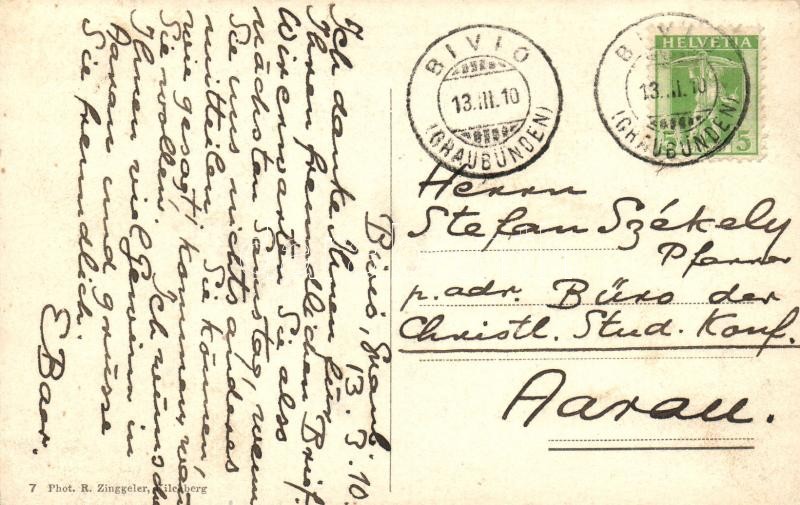 Bivio, Graub.
13. 3. 10.
Ich danke Ihnen für
Ihren freundlichen Brief.
Wir erwarten Sie also
nächsten Samstag, wenn
Sie uns nichts anderes
mitteilen. Sie können,
wie gesagt, kommen, wann
Sie wollen. Ich wünsche
Ihnen viel Gewinn in
Aarau und grüsse
Sie freundlich.
E Baer.
BIVIO
13.III.10
(GRAUBÜNDEN)
BIVIO
13.III.10
(GRAUBÜNDEN)
HELVETIA
5
Herrn
Stefan Székely
Pfarrer
p. adr. Büro der
Christl. Stud. Konf.
Aarau.
7 Phot. R. Zinggeler, Kilchberg